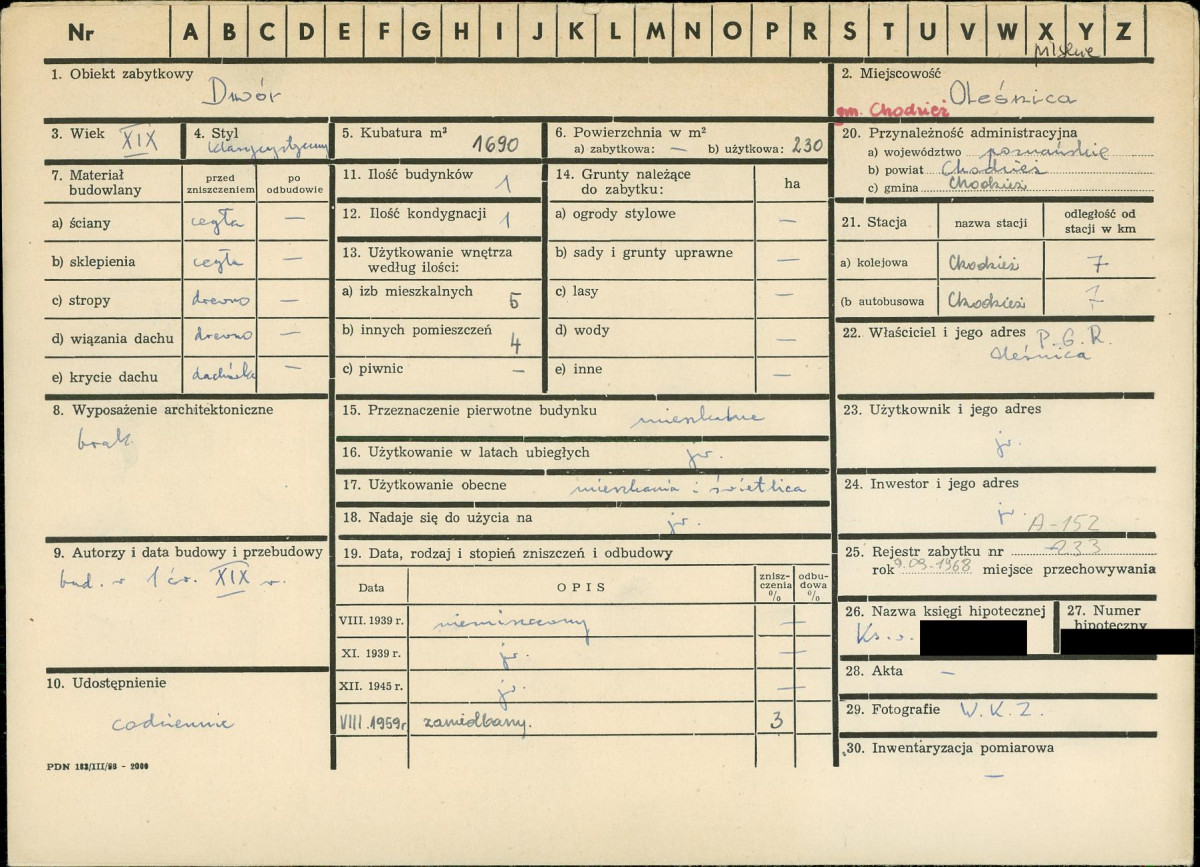 Nr A B C D E F G H I J K L M N O P R S T U V W X Y Z
1. Obiekt zabytkowy
Dwór
2. Miejscowość
Oleśnica
gm. Chodzież
3. Wiek XIX
4. Styl
klasycystyczny
5. Kubatura m³
1690
6. Powierzchnia w m²
a) zabytkowa: — b) użytkowa: 230
7. Materiał budowlany
przed zniszczeniem
po odbudowie
a) ściany cegła —
b) sklepienia cegła —
c) stropy drewno —
d) wiązania dachu drewno —
e) krycie dachu dachówka —
8. Wyposażenie architektoniczne
brak
9. Autorzy i data budowy i przebudowy
bud. w 1 ćw. XIX w.
10. Udostępnienie
codziennie
PDN 183/III/58 - 2000
11. Ilość budynków 1
12. Ilość kondygnacji 1
13. Użytkowanie wnętrza
według ilości:
a) izb mieszkalnych 5
b) innych pomieszczeń 4
c) piwnic —
14. Grunty należące
do zabytku:
ha
a) ogrody stylowe —
b) sady i grunty uprawne —
c) lasy —
d) wody —
e) inne —
15. Przeznaczenie pierwotne budynku mieszkalne
16. Użytkowanie w latach ubiegłych jw.
17. Użytkowanie obecne mieszkania i świetlica
18. Nadaje się do użycia na jw.
19. Data, rodzaj i stopień zniszczeń i odbudowy
Data
OPIS
znisz-
czenia
%
odbu-
dowa
%
VIII. 1939 r. niezniszczony —
XI. 1939 r. jw. —
XII. 1945 r. jw. —
VIII. 1959 r zaniedbany. 3
20. Przynależność administracyjna
a) województwo poznańskie
b) powiat Chodzież
c) gmina Chodzież
21. Stacja
nazwa stacji
odległość od
stacji w km
a) kolejowa Chodzież 7
(b autobusowa Chodzież 7
22. Właściciel i jego adres P.G.R.
Oleśnica
23. Użytkownik i jego adres
jw.
24. Inwestor i jego adres
jw.
A-152
25. Rejestr zabytku nr 233
rok 9.09.1968 miejsce przechowywania
26. Nazwa księgi hipotecznej
Ks. w.
27. Numer
hipoteczny
28. Akta —
29. Fotografie W.K.Z.
30. Inwentaryzacja pomiarowa
—